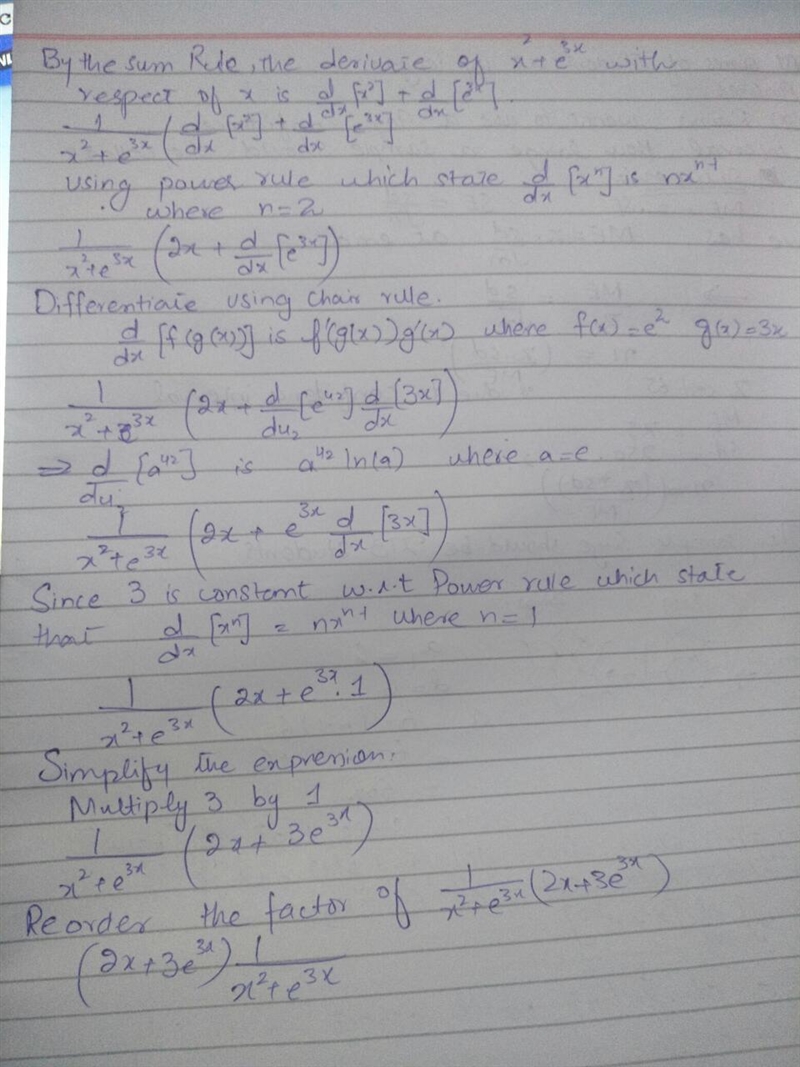 C
NL
By the sum Rule, the derivaie of x² + e^3x with
respect of x is d/dx [x²] + d/dx [e^3x].
1/(x² + e^3x) ( d/dx [x²] + d/dx [e^3x]
using power rule which state d/dx [xⁿ] is nx^n-1
where n=2
1/(x²+e^3x) (2x + d/dx [e^3x])
Differentiaie using chair rule.
d/dx [f(g(x))] is f'(g(x))g'(x) where f(x)=e² g(x)=3x
1/(x²+e^3x) (2x + d/du₂ [e^u2] d/dx [3x])
⇒ d/du₂ [a^u2] is a^u2 ln(a) where a=e
1/(x²+e^3x) (2x + e^3x d/dx [3x])
Since 3 is constant w.r.t Power rule which state
that d/dx [xⁿ] = nx^n-1 where n=1
1/(x²+e^3x) (2x + e^3x . 1)
Simplify the expression.
Multiply 3 by 1
1/(x²+e^3x) (2x + 3e^3x)
Reorder the factor of 1/(x²+e^3x) (2x+3e^3x)
(2x+3e^3x) 1/(x²+e^3x)